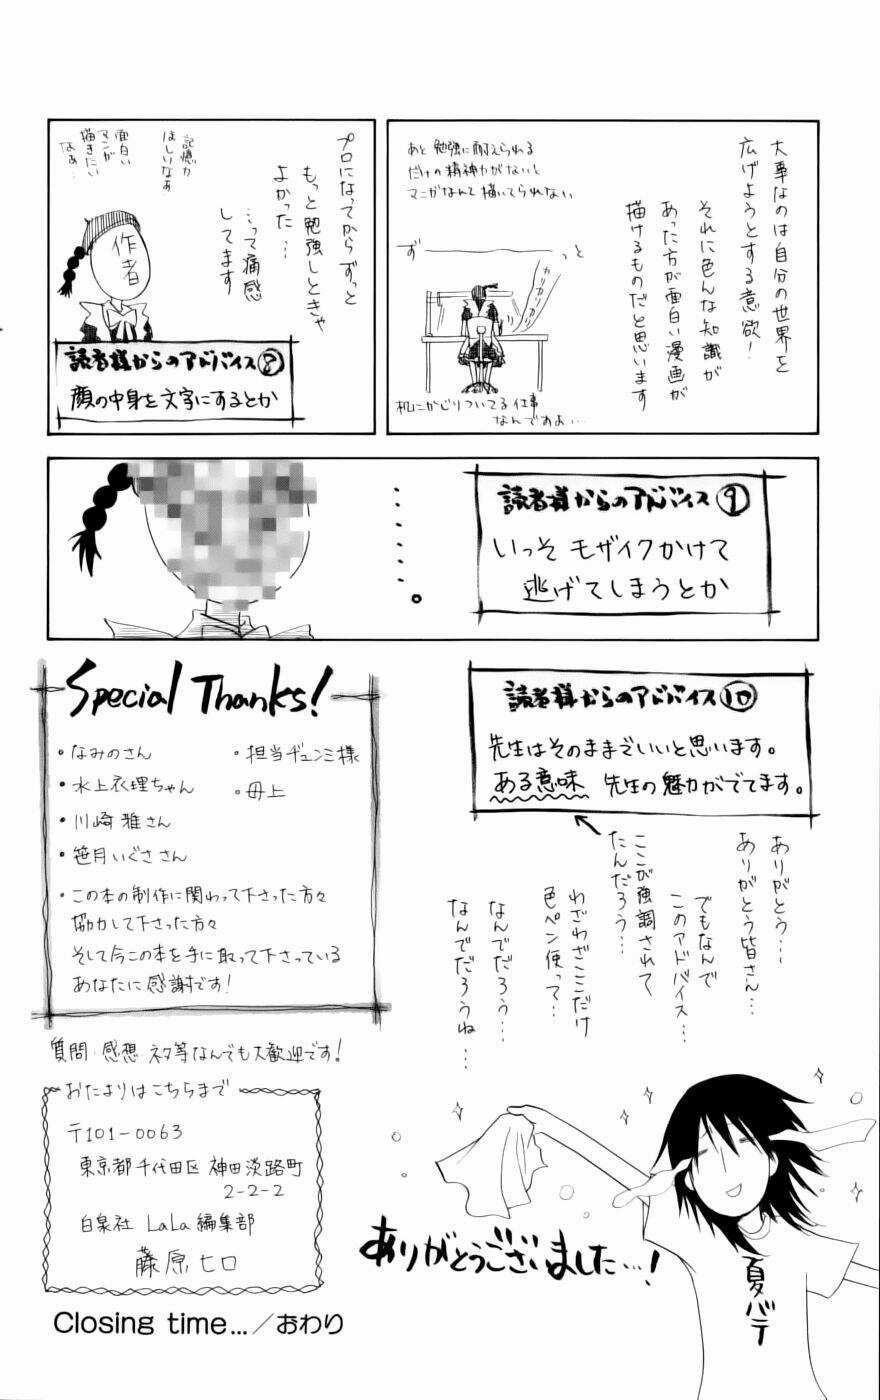 大事なのは自分の世界を
広げようとする意欲!
それに色んな知識が
あった方が面白い漫画が
描けるものだと思います
あと勉強に耐えられる
だけの精神力がないと
マンガなんて描いてられない
ず
っと
カリカリカリカリ
机にかじりついてる仕事
なんですよ…
プロになってからずっと
もっと勉強しときゃ
よかった…
…って痛感
してます
記憶力
ほしいなぁ
面白い
マンガ
描きたい
なぁ…
作者
読者様からのアドバイス⑧
顔の中身を文字にするとか
読者様からのアドバイス⑨
いっそモザイクかけて
逃げてしまうとか
......。
読者様からのアドバイス⑩
先生はそのままでいいと思います。
ある意味 先生の魅力がでてます。
ありがとう…
ありがとう皆さん…
でもなんで
このアドバイス…
ここが強調されて
たんだろう…
わざわざここだけ
色ペン使って…
なんでだろう…
なんでだろうね…
Special Thanks!
・なみのさん
・水上衣理ちゃん
・川崎雅さん
・笹月いぐささん
・担当ヂュンミ様
・母上
・この本の制作に関わって下さった方々
協力して下さった方々
そして今この本を手に取って下さっている
あなたに感謝です!
質問・感想 ネタ等なんでも大歓迎です!
おたよりはこちらまで
〒101-0063
東京都千代田区神田淡路町
2-2-2
白泉社 LaLa編集部
藤原ヒロ
ありがとうございました…!
夏バテ
Closing time…/おわり